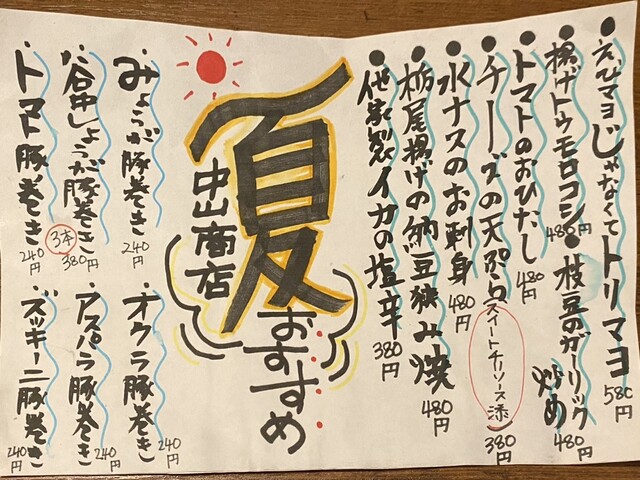 ●えびマヨじゃなくてトリマヨ 580円
●揚げトウモロコシ 480円
●枝豆のガーリック炒め 480円
●トマトのおひたし 480円
●チーズの天ぷら(スイートチリソース添) 380円
●水ナスのお刺身 480円
●栃尾揚げの納豆狭み焼 480円
●他家製イカの塩辛 380円
夏
おすすめ
中山商店
・みょうが豚巻き 240円
・谷中しょうが豚巻き 3本 380円
・トマト豚巻き 240円
・オクラ豚巻き 240円
・アスパラ豚巻き 240円
・ズッキーニ豚巻き 240円